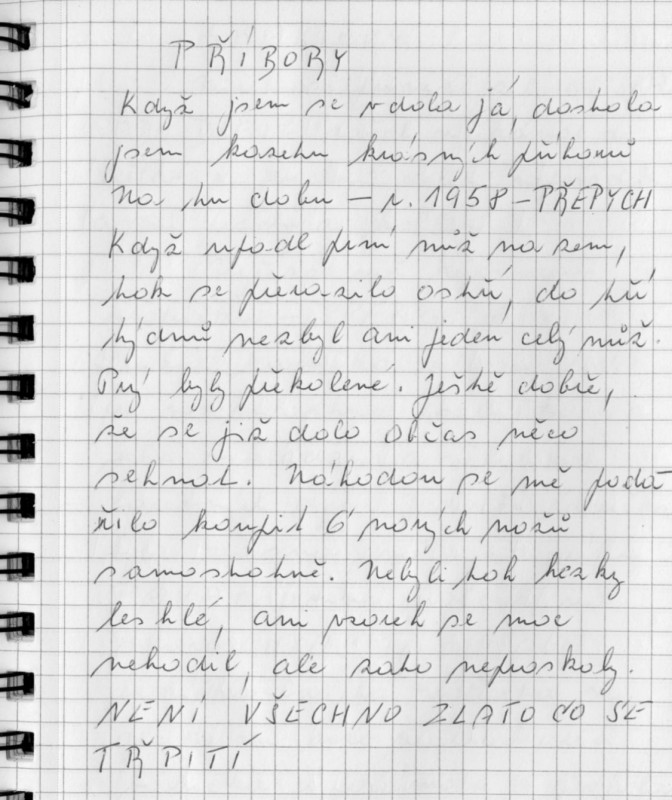 PŘÍBORY
Když jsem se vdala já, dostala
jsem kazetu krásných příborů
Na tu dobu – r. 1958 – PŘEPYCH
Když upadl první nůž na zem,
tak se přerazilo ostří, do tří
týdnů nezbyl ani jeden celý nůž.
Prý byly překalené. Ještě dobře,
že se již dalo občas něco
sehnat. Náhodou se mě poda-
řilo koupit 6 nových nožů
samostatně. Nebyli tak hezky
lesklé, ani vzorek se moc
nehodil, ale zato nepraskaly.
NENÍ VŠECHNO ZLATO CO SE
TŘPITÍ